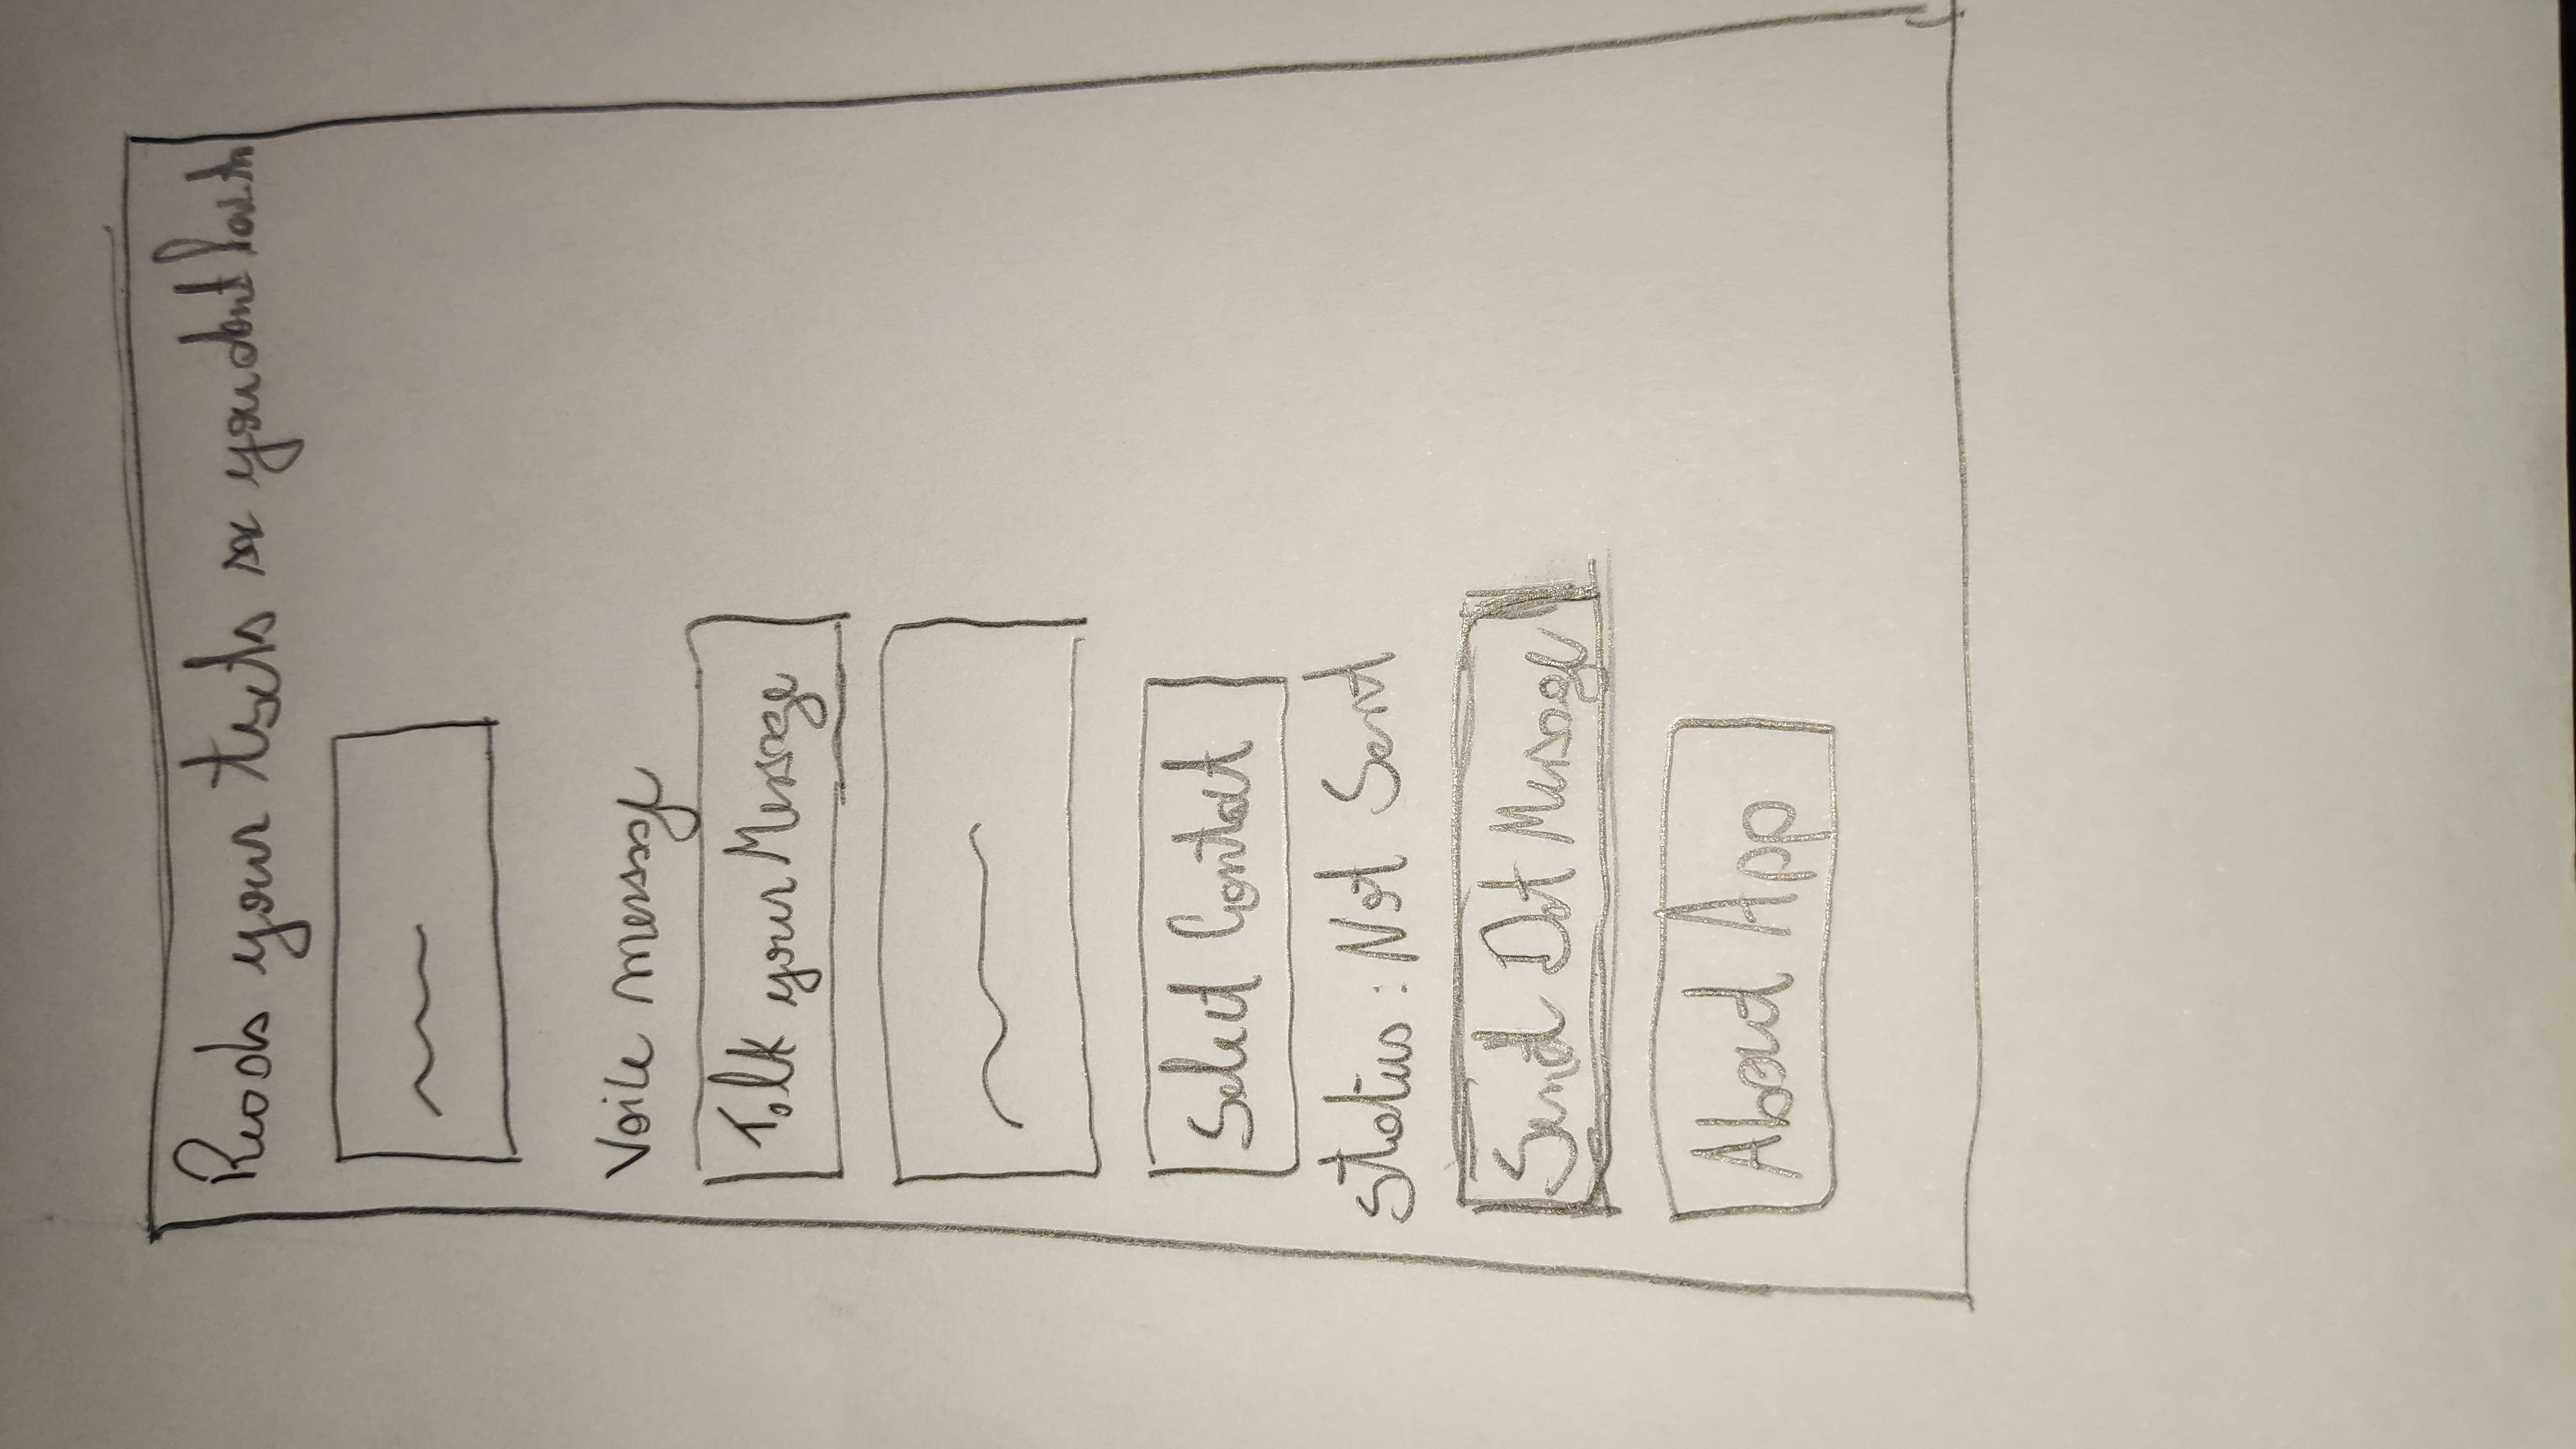 Reads your texts so you dont have to
Voice message
Talk your Message
Select Contact
Status: Not Sent
Send Dot Message
About App